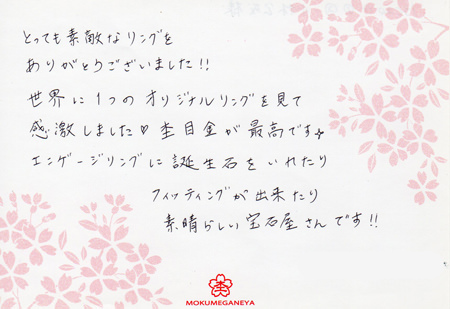 とっても素敵なリングを
ありがとうございました!!
世界に1つのオリジナルリングを見て
感激しました♡杢目金が最高です☆
エンゲージリングに誕生石をいれたり
フィッティングが出来たり
素晴らしい宝石屋さんです!!
杢
MOKUMEGANEYA